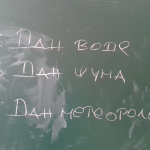 Дан воде
Дан шума
Дан метеорол